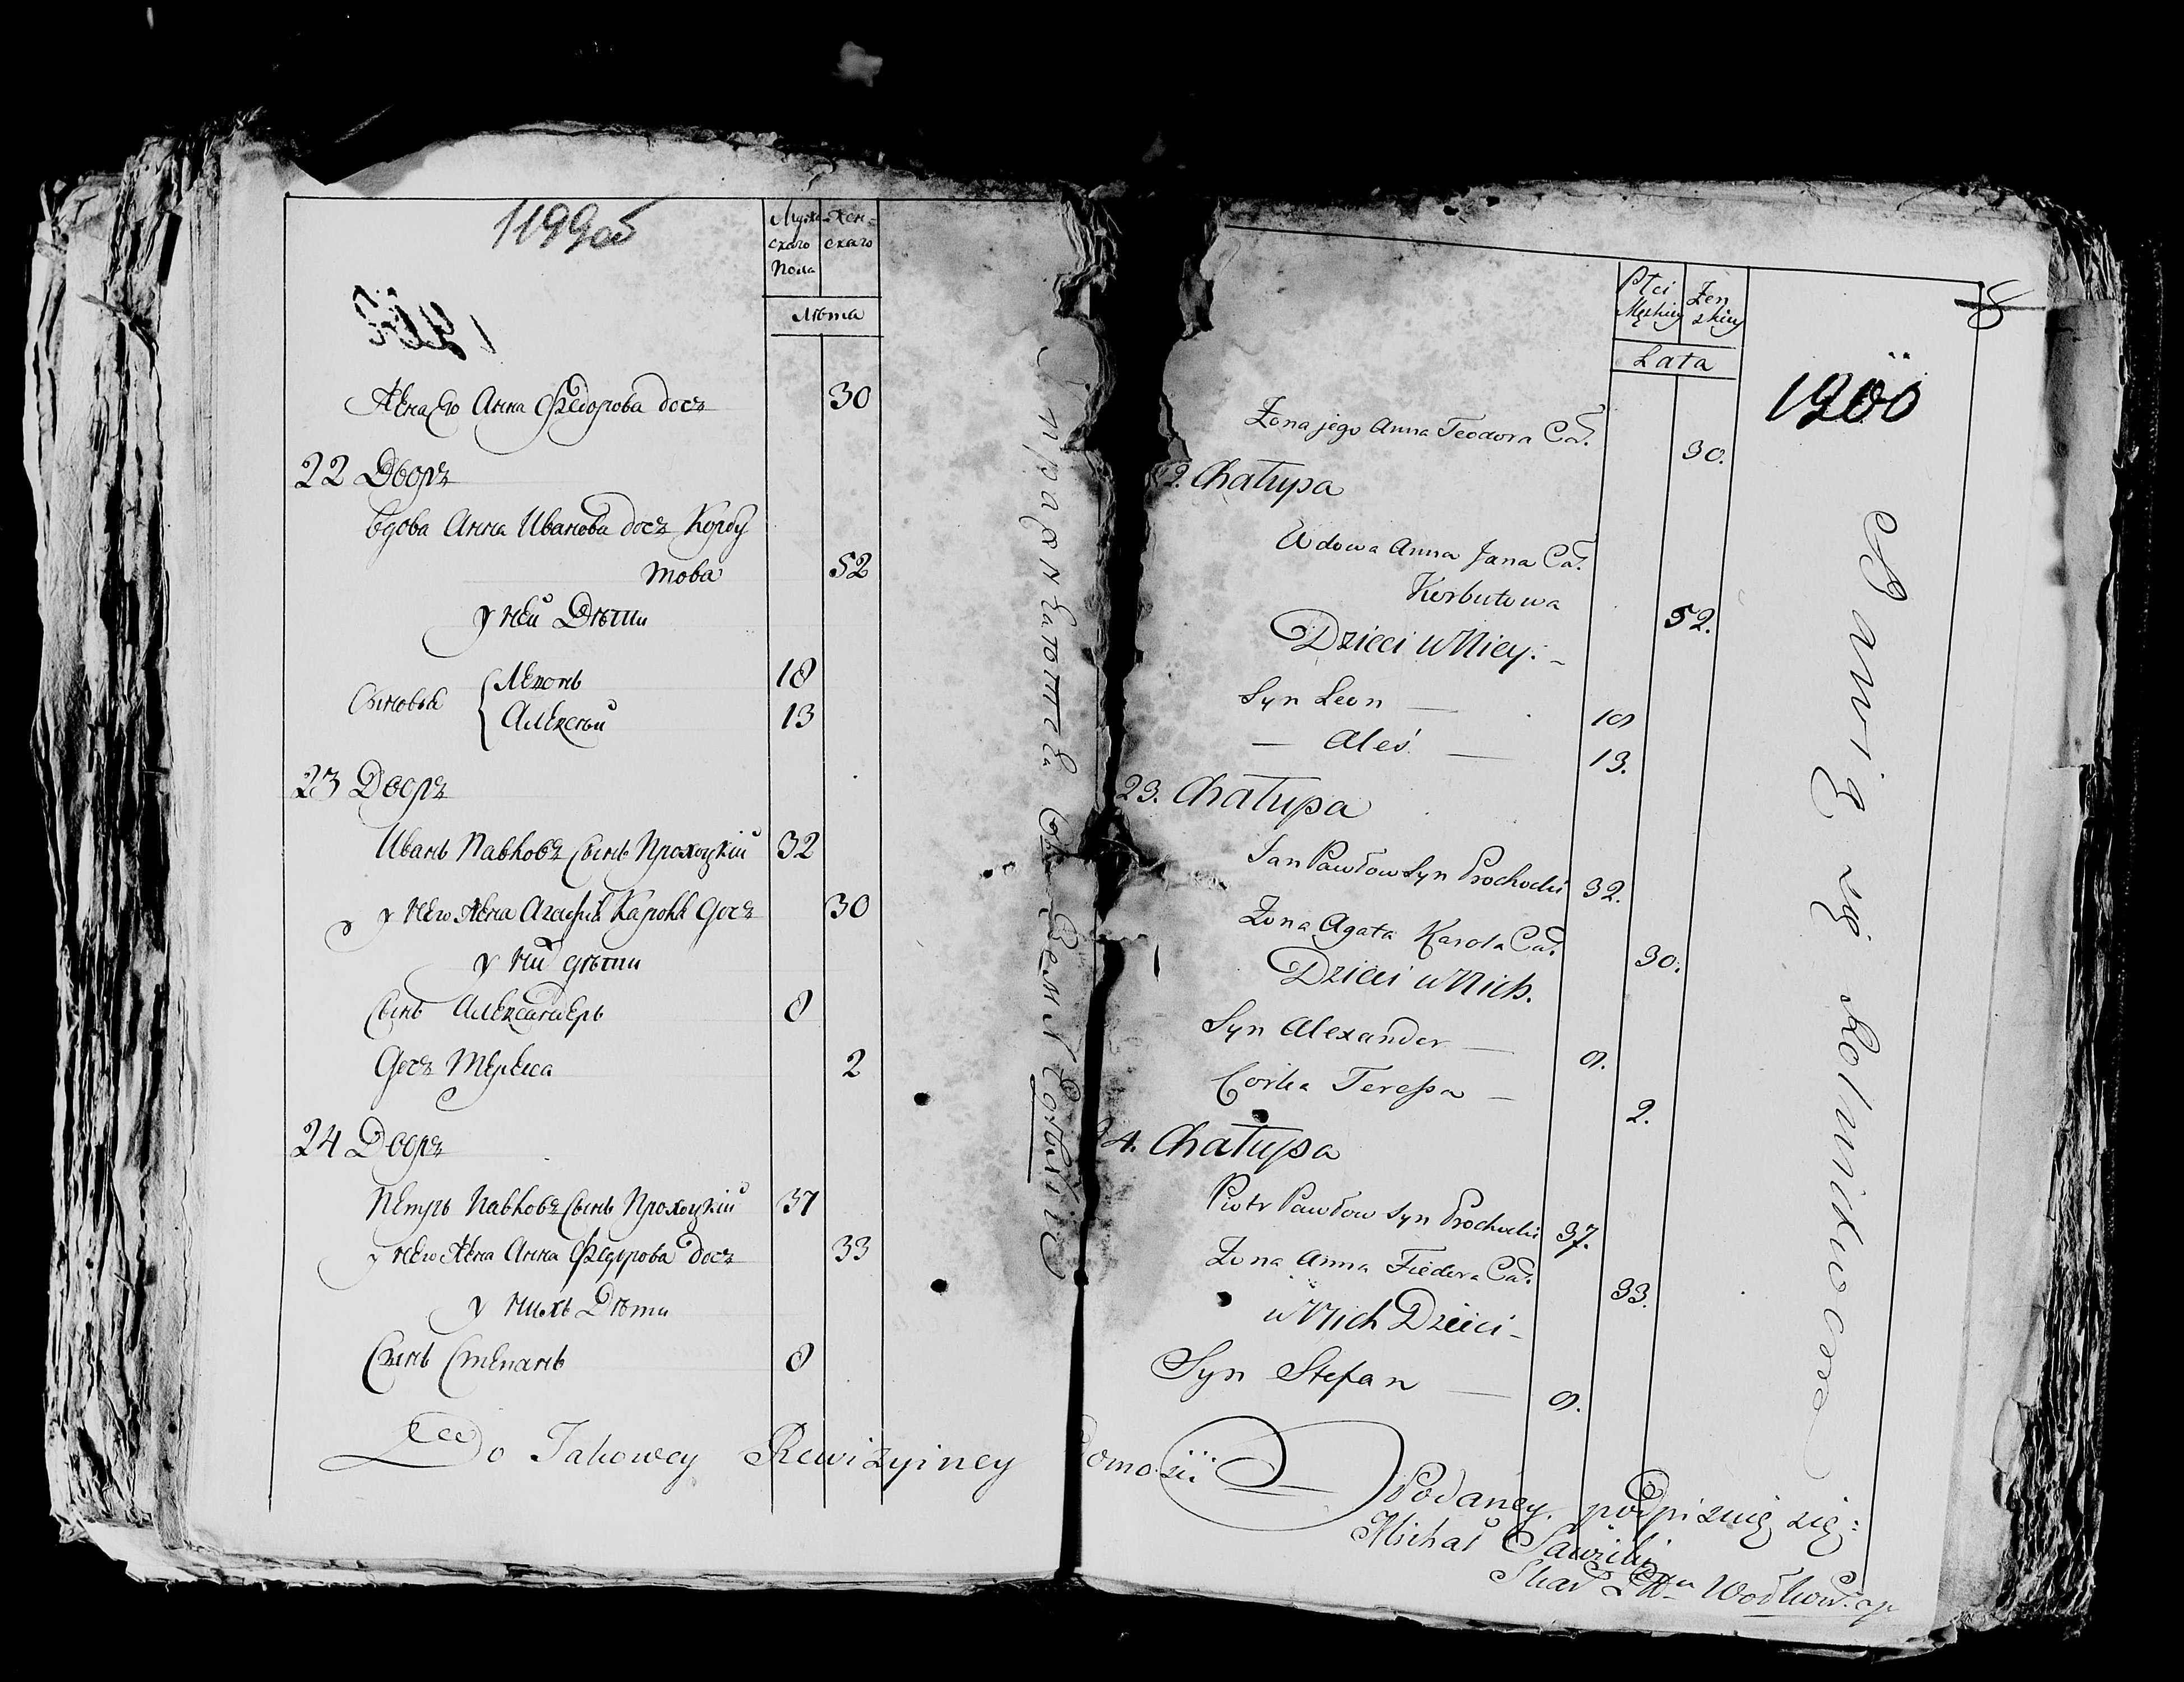 1199об
Мужскаго Пола
Женскаго
Лѣта
Жена Его Анна Федорова дочь 30
22 Дворъ
Вдова Анна Иванова дочь Корбу
това 52
у ней Дѣти
Сыновья Леонъ 18
Алексѣй 13
23 Дворъ
Иванъ Павловъ Сынъ Прохоцкій 32
у него Жена Агафія Каро дочь 30
у ни дѣти
Сынъ Александеръ 8
Дочь Тереса 2
24 Дворъ
Петръ Павловъ Сынъ Прохоцкій 37
у него Жена Анна Федорова Дочь 33
у нихъ Дѣти
Сынъ Степанъ 8
Do Takowey Rewizyiney
8
Płci Męskiey
Żen
skiey
Lata
1200
Żona jego Anna Teodora Cór. 30.
2. Chałupa
Wdowa Anna Jana Cór.
Korbutowa 52.
Dzieci u Niey:
Syn Leon 18
— Aleś 13.
23. Chałupa
Jan Pawłow Syn Prochocki 32.
Żona Agata Karola Cór. 30.
Dzieci u Nich.
Syn Alexander 8.
Corka Teressa 2.
24. Chałupa
Piotr Pawłow Syn Prochocki 37.
Żona Anna Fiedora Cór. 33.
u Nich Dzieci
Syn Stefan 8.
Podaney podpisuię się:
Michał